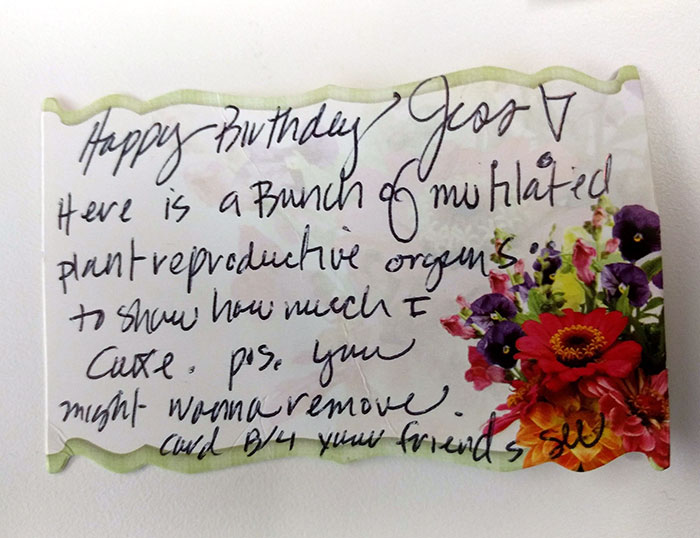 Happy Birthday Jess
Here is a Bunch of mutilated
plant reproductive organs
to show how much I
care. p.s. you
might wanna remove.
card B/4 your friends see